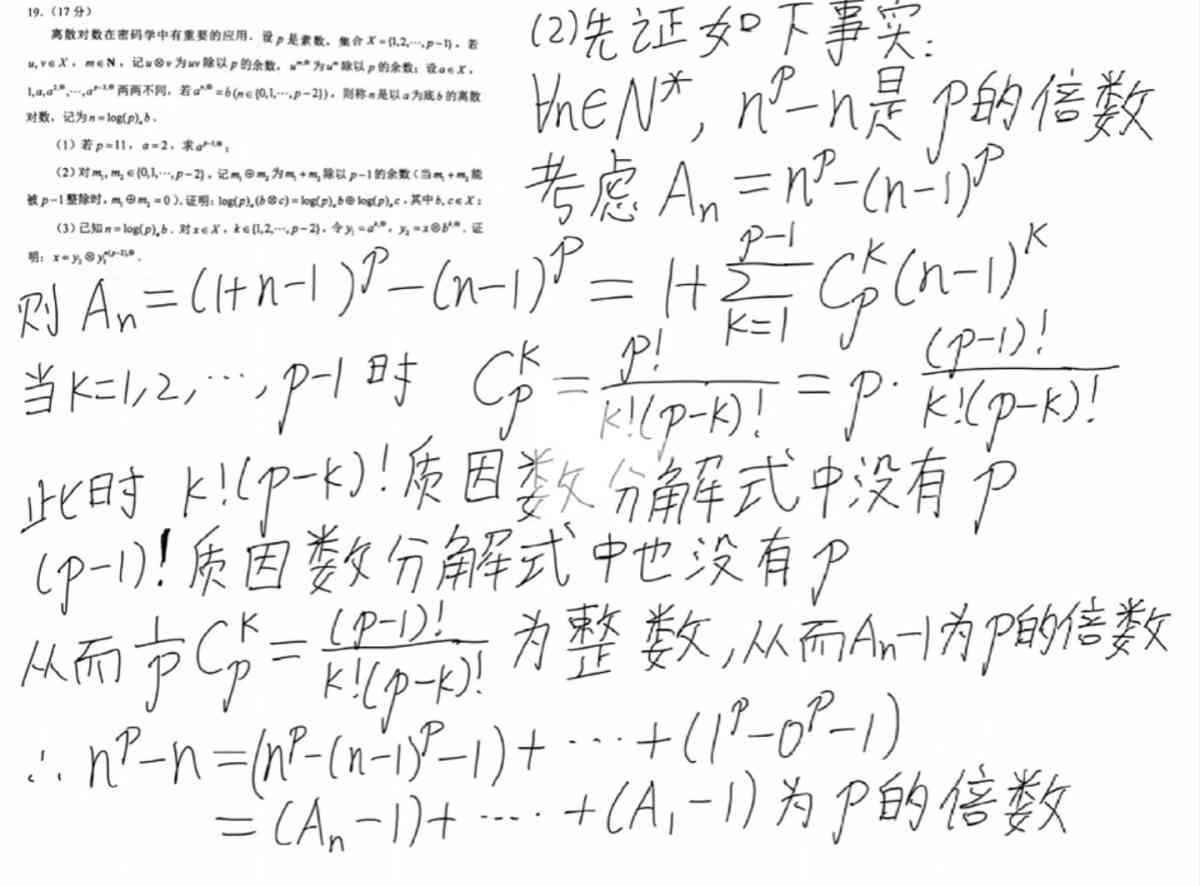 19.（17分）
离散对数在密码学中有重要的应用. 设p是素数, 集合X={1,2,⋯,p-1}, 若
u,v∈X, m∈N, 记u⊗v为uv除以p的余数, u^{m,⊗}为u^m除以p的余数; 设a∈X,
1,a,a^{2,⊗},⋯,a^{p-2,⊗}两两不同, 若a^{n,⊗}=b(n∈{0,1,⋯,p-2}), 则称n是以a为底b的离散
对数, 记为n=log(p)_a b.
（1）若p=11, a=2, 求a^{p-1,⊗};
（2）对m₁,m₂∈{0,1,⋯,p-2}, 记m₁⊕m₂为m₁+m₂除以p-1的余数（当m₁+m₂能
被p-1整除时, m₁⊕m₂=0）. 证明: log(p)_a(b⊗c)=log(p)_a b⊕log(p)_a c, 其中b,c∈X;
（3）已知n=log(p)_a b. 对x∈X, k∈{1,2,⋯,p-2}, 令y₁=a^{k,⊗}, y₂=x⊗b^{k,⊗}. 证
明: x=y₂⊗y₁^{n(p-2),⊗}.
(2)先证如下事实:
∀n∈N*, n^p-n是p的倍数
考虑 A_n=n^p-(n-1)^p
则 A_n=(1+n-1)^p-(n-1)^p=1+∑_{k=1}^{p-1} C_p^k(n-1)^k
当k=1,2,⋯,p-1时 C_p^k=p!/(k!(p-k)!)=p·(p-1)!/(k!(p-k)!)
此时 k!(p-k)!质因数分解式中没有p
(p-1)!质因数分解式中也没有p
从而 1/p C_p^k=(p-1)!/(k!(p-k)!) 为整数,从而A_n-1为p的倍数
∴ n^p-n=(n^p-(n-1)^p-1)+⋯+(1^p-0^p-1)
=(A_n-1)+⋯+(A_1-1)为p的倍数